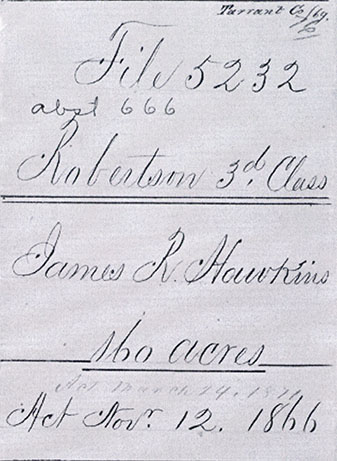 Tarrant Co
File 5232
abst 666
Robertson 3d. Class
James R. Hawkins
160 acres
Act March 14. 1871
Act Novr. 12. 1866